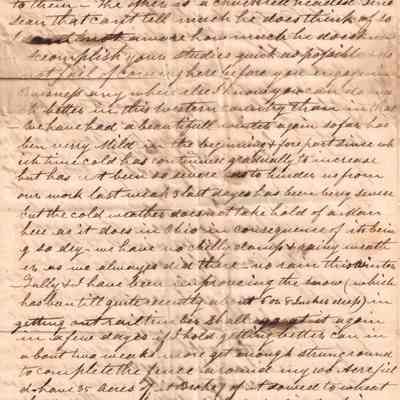 to them - The other is a
seen that can't tell much he does think of so
I much more how much he does
accomplish your studies quick as posible do
not fail of coming here before you engage in
buisness any where else I know you can do
better in this western country than in that
- we have had a beautifull winter again so far has
ben verry mild in the beginning & fore part since wh
ich time cold has continued gradually to increase
but has not ben so severe as to hinder us from
our work last week 3 last dayes has been being severe
but the cold weather does not take hold of a man
here as it does in Ohio in consequence of its bein
g so dry - we have no chilly damp & rainy weath
er as we alwayes did there - no rain this winter
& I have been improveing the snow (which
has ben till quite recently about 6 or 8 inches deep) in
getting out rail timber shall go at it again
in a few dayes if I hold getting better can in
about two weeks more get enough strung around
to complete the fence around my 60 Acre field
do have 35 Acres of it Broke & it sowed to wheat